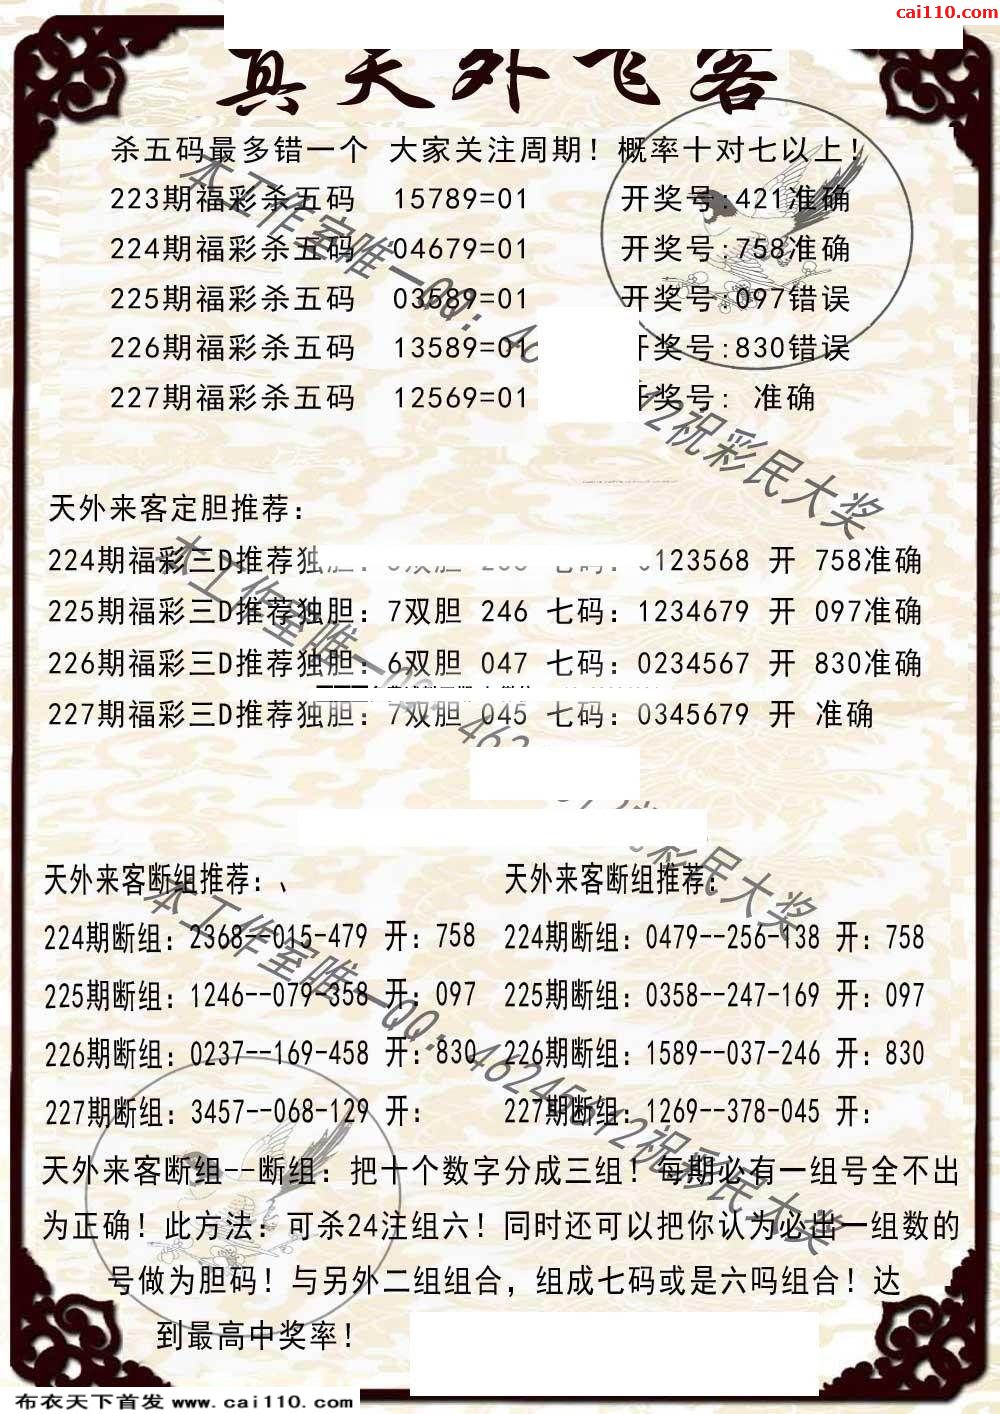 cai110.com
真天外飞客
杀五码最多错一个 大家关注周期！概率十对七以上！
223期福彩杀五码 15789=01 开奖号:421准确
224期福彩杀五码 04679=01 开奖号:758准确
225期福彩杀五码 03589=01 开奖号:097错误
226期福彩杀五码 13589=01 开奖号:830错误
227期福彩杀五码 12569=01 开奖号: 准确
天外来客定胆推荐：
224期福彩三D推荐独胆： 双胆 七码： 123568 开 758准确
225期福彩三D推荐独胆：7双胆 246 七码：1234679 开 097准确
226期福彩三D推荐独胆：6双胆 047 七码：0234567 开 830准确
227期福彩三D推荐独胆：7双胆 045 七码：0345679 开 准确
天外来客断组推荐：、 天外来客断组推荐：
224期断组：2368--015-479 开：758 224期断组：0479--256-138 开：758
225期断组：1246--079-358 开：097 225期断组：0358--247-169 开：097
226期断组：0237--169-458 开：830 226期断组：1589--037-246 开：830
227期断组：3457--068-129 开： 227期断组：1269--378-045 开：
天外来客断组--断组：把十个数字分成三组！每期必有一组号全不出
为正确！此方法：可杀24注组六！同时还可以把你认为必出一组数的
号做为胆码！与另外二组组合，组成七码或是六吗组合！达
到最高中奖率！
本工作室唯一QQ：46 12祝彩民大奖
本工作室唯一QQ：462 彩民大奖
本工作室唯一QQ：46245612祝彩民大奖
布衣天下首发 www.cai110.com